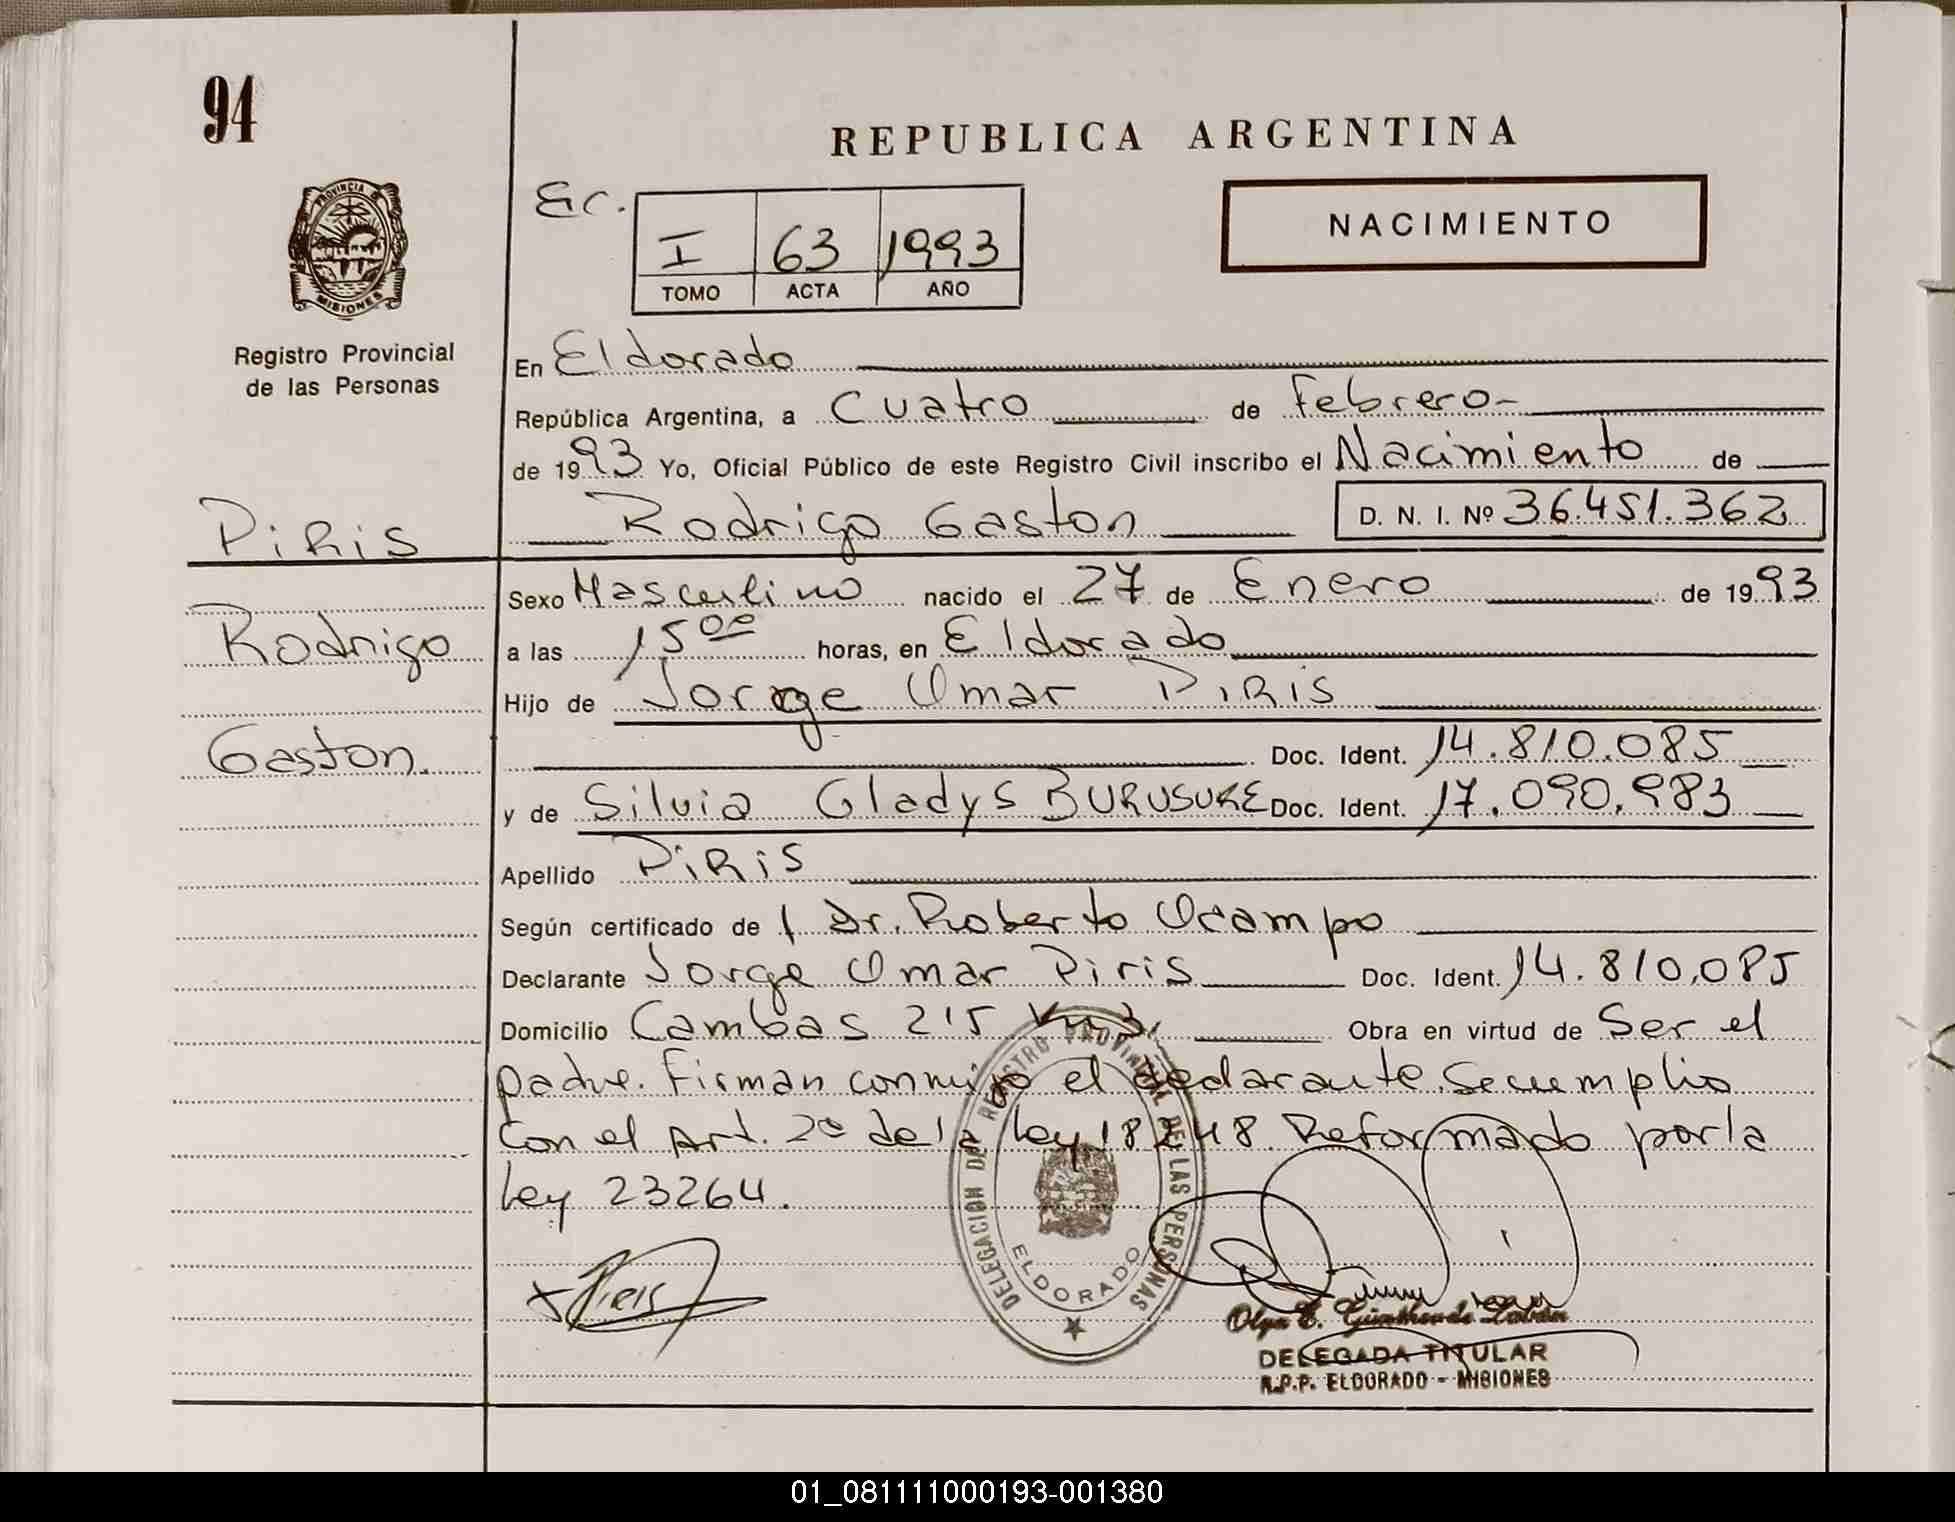 94
REPUBLICA ARGENTINA
PROVINCIA DE
MISIONES
Ec.
I 63 1993
TOMO ACTA AÑO
NACIMIENTO
Registro Provincial
de las Personas
En Eldorado
República Argentina, a Cuatro de Febrero-
de 1993 Yo, Oficial Público de este Registro Civil inscribo el Nacimiento de
PiRis
Rodrigo Gaston D. N. I. Nº 36.451.362
Sexo Masculino nacido el 27 de Enero de 1993
Rodrigo
a las 15⁰⁰ horas, en Eldorado
Hijo de Jorge Omar PiRiS
Gaston.
Doc. Ident. 14.810.085
y de Silvia Gladys Doc. Ident. 17.090.983
Apellido PiRiS
Según certificado de Dr. Roberto Ocampo
Declarante Jorge Omar Piris Doc. Ident. 14.810.085
Domicilio Cambas 215 Obra en virtud de Ser el
padre. Firman conmigo el declarante. Se cumplio
Con el Art. 2º de la Ley 18248 Reformado por la
Ley 23264.
DELEGACION DEL REGISTRO PROVINCIAL DE LAS PERSONAS
ELDORADO
Piris
Olga E.
DELEGADA TITULAR
R.P.P. ELDORADO - MISIONES
01_081111000193-001380